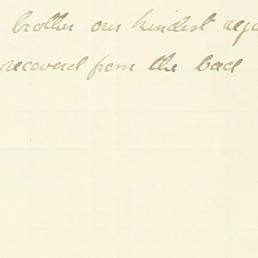 brother our kindest rega
recovered from the bad